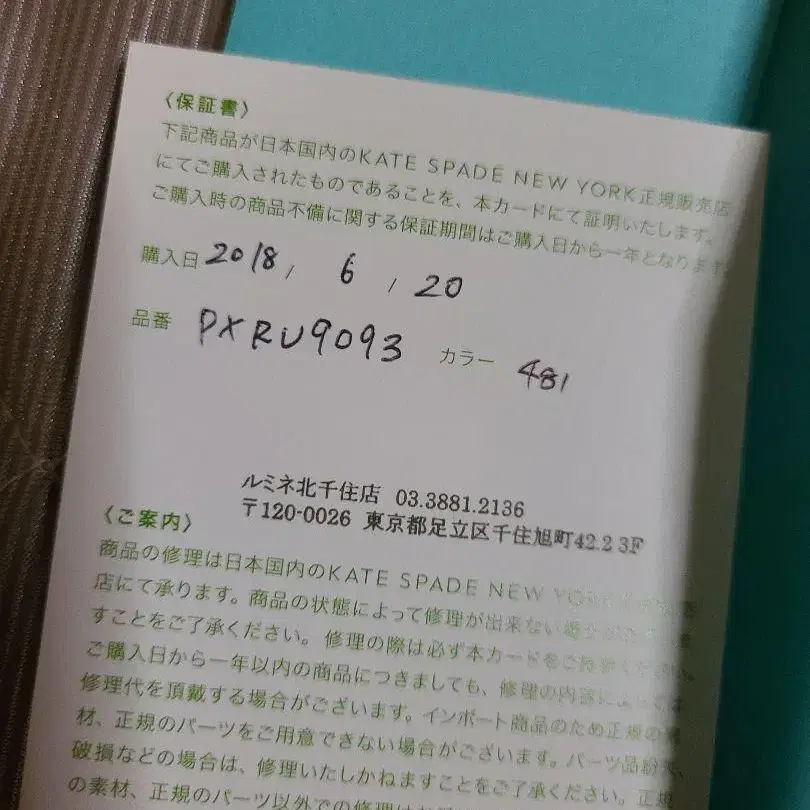 〈保証書〉
下記商品が日本国内のKATE SPADE NEW YORK正規販売店
にてご購入されたものであることを、本カードにて証明いたします。
ご購入時の商品不備に関する保証期間はご購入日から一年となります。
購入日 2018 / 6 / 20
品番 PXRU9093 カラー 481
ルミネ北千住店 03.3881.2136
〒120-0026 東京都足立区千住旭町42.2 3F
〈ご案内〉
商品の修理は日本国内のKATE SPADE NEW YORK
店にて承ります。商品の状態によって修理が出来ない
すことをご了承ください。修理の際は必ず本カードをご持参ください。
ご購入日から一年以内の商品につきましても、修理の内容によっては
修理代を頂戴する場合がございます。インポート商品のため正規の
材、正規のパーツをご用意できない場合がございます。パーツ品紛失、
破損などの場合は、修理いたしかねますことをご了承ください。正規
の素材、正規のパーツ以外での修理は